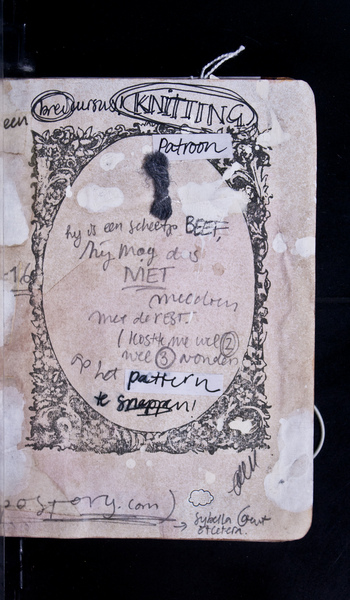 een breicursus! KNITTING
Patroon
hij is een scheefs BEEF,
hij mag dus
NIET
meedoen
met de REST!
(kostte me wel 2
wel 3 avonden
op het pattern
te snappen!
postory.com)
→ Sybella
etcetera.